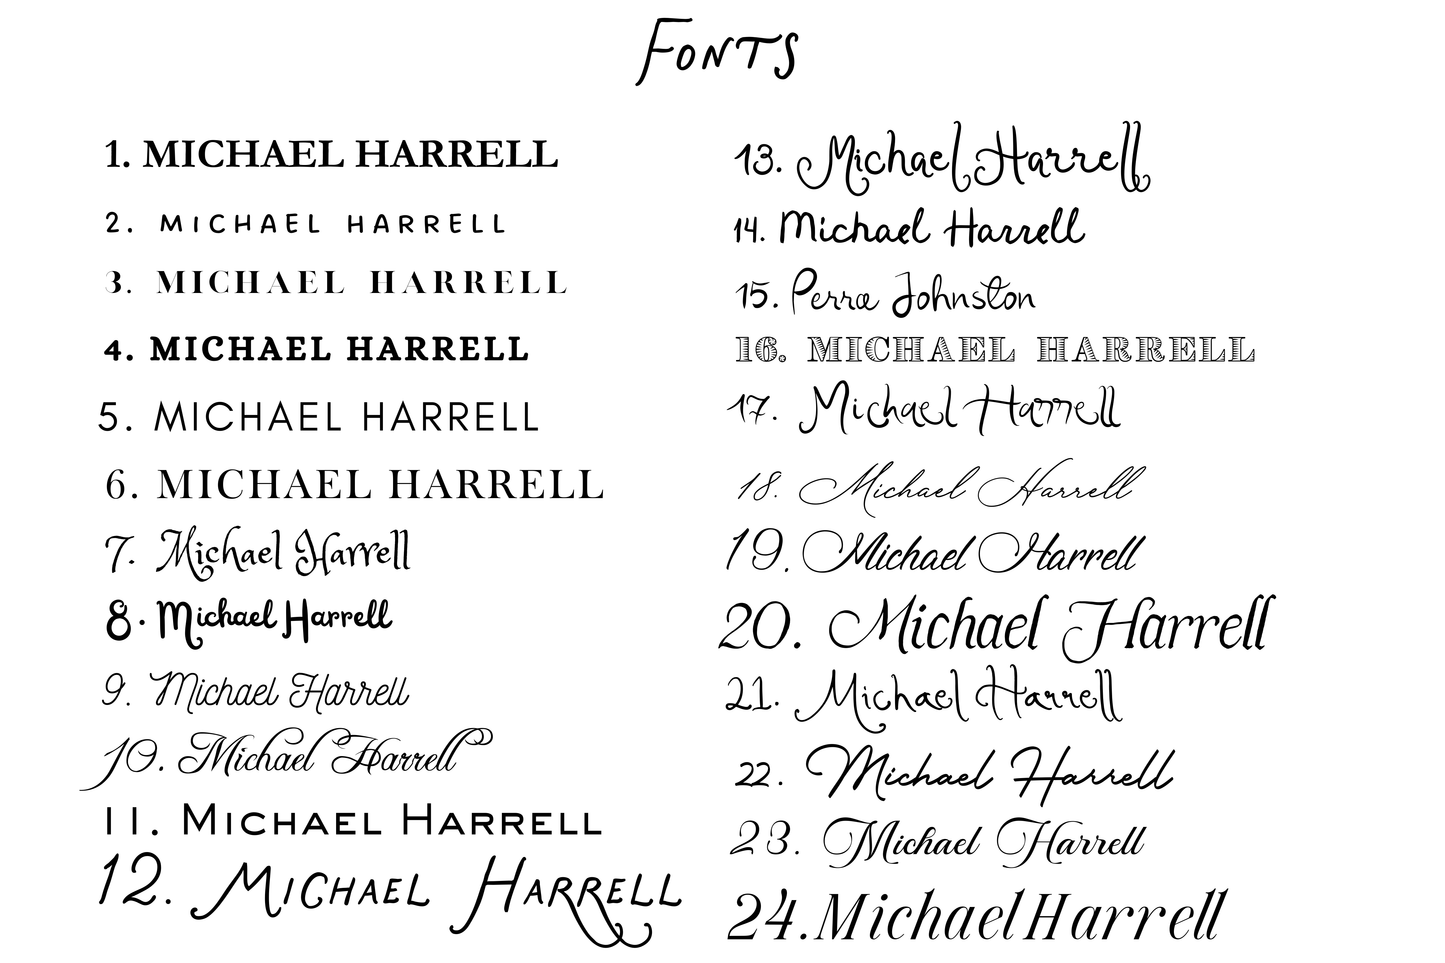 FONTS
1. MICHAEL HARRELL
2. MICHAEL HARRELL
3. MICHAEL HARRELL
4. MICHAEL HARRELL
5. MICHAEL HARRELL
6. MICHAEL HARRELL
7. Michael Harrell
8. Michael Harrell
9. Michael Harrell
10. Michael Harrell
11. MICHAEL HARRELL
12. MICHAEL HARRELL
13. Michael Harrell
14. Michael Harrell
15. Perra Johnston
16. MICHAEL HARRELL
17. Michael Harrell
18. Michael Harrell
19. Michael Harrell
20. Michael Harrell
21. Michael Harrell
22. Michael Harrell
23. Michael Harrell
24. Michael Harrell